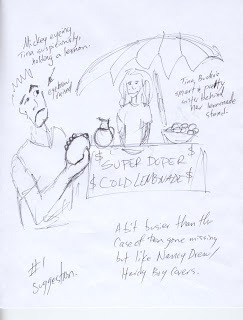 Mickey eyeing
Tina suspiciously,
holding a lemon.
eyebrow
raised
Tina, Bucko's
smart & pretty
wife behind
her lemonade
stand.
$ SUPER DUPER $
$ COLD LEMONADE $
A bit busier than the
Case of then gone missing
but like Nancy Drew/
Hardy Boy Covers.
#1
Suggestion.